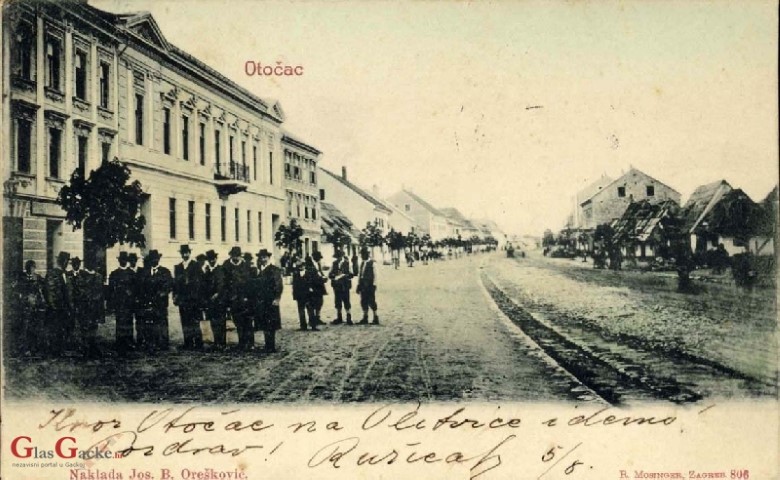 Otočac
Otočac na Plitvice idemo!
Pozdrav! 5/8.
GlasGacke.hr
nezavisni portal u Gackoj
Naklada Jos. B. Orešković.
R. Mosinger, Zagreb 806